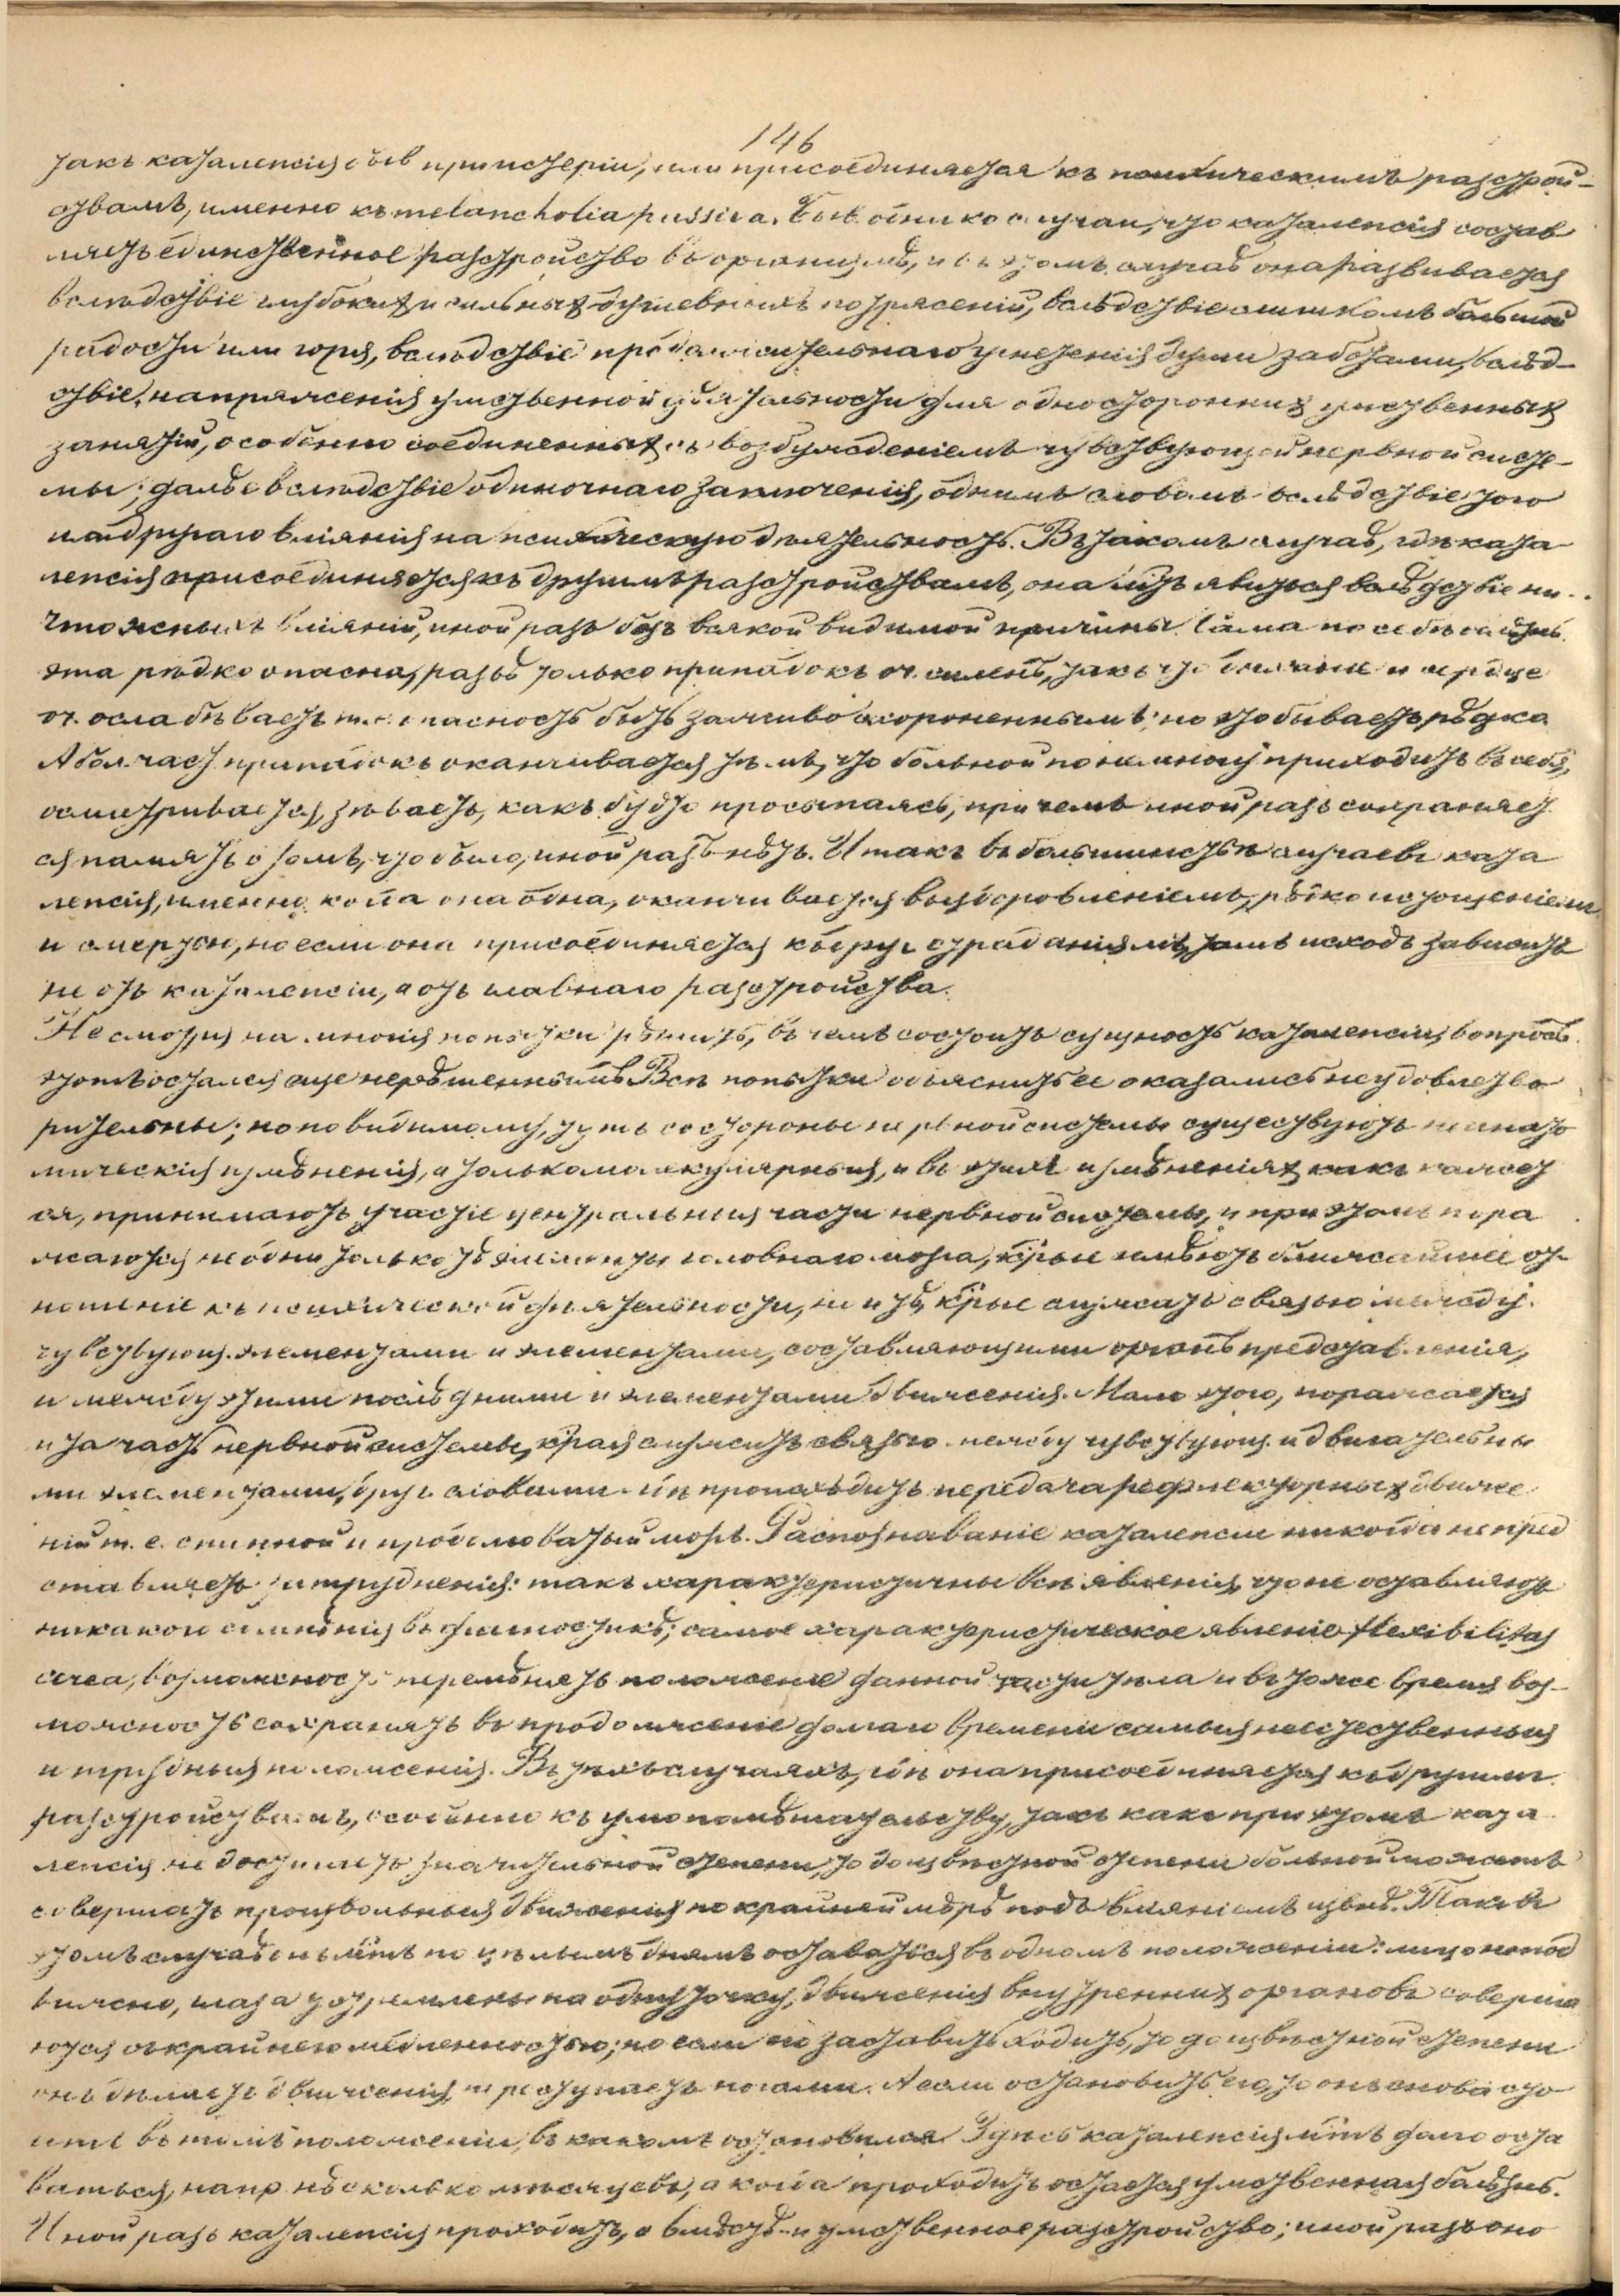 146
такъ каталепсія быв при истеріи, или присоединяется къ психическимъ разстрой-
ствамъ, именно къ melancholia passiva. Быв. однако случаи, что каталепсія состав
ляетъ единственное разстройство въ организмѣ, и въ этомъ случаѣ она развивается
вслѣдствіе глубокихъ и сильныхъ душевныхъ потрясеній, вслѣдствіе слишкомъ большой
радости или горя, вслѣдствіе продолжительнаго угнетенія души заботами, вслѣд-
ствіе напряженія умственной дѣятельности для одностороннихъ умственныхъ
занятій, особенно соединенныхъ съ возбужденіемъ чувствующей нервной систе-
мы; далѣе вслѣдствіе одиночнаго заключенія, однимъ словомъ вслѣдствіе того
или другаго вліянія на психическую дѣятельность. Въ такомъ случаѣ, гдѣ ката
лепсія присоединяется къ другимъ разстройствамъ, она мож. явиться вслѣдствіе ни-
чтожныхъ вліяній, иной разъ безъ всякой видимой причины. Сама по себѣ болѣзнь
эта рѣдко опасна, развѣ только припадокъ оч. силенъ, такъ что дыханіе и сердце
оч. ослабѣваетъ т. е. опасность быть заживо схороненнымъ; но это бываетъ рѣдко
А бол. част. припадокъ оканчивается тѣмъ, что больной понемногу приходитъ въ себя,
осматривается, зѣваетъ, какъ будто просыпаясь, при чемъ иной разъ сохраняет
ся память о томъ, что было, иной разъ нѣтъ. Итакъ въ большинствѣ случаевъ ката
лепсія, именно когда она одна, оканчивается выздоровленіемъ, рѣдко истощеніемъ
и смертью, но если она присоединяется къ друг. страданіямъ, тамъ исходъ зависитъ
не отъ каталепсіи, а отъ главнаго разстройства.
Не смотря на многія попытки рѣшить, въ чемъ состоитъ сущность каталепсіи, вопросъ
этотъ остался еще нерѣшеннымъ. Всѣ попытки объяснить ее оказались неудовлетво
рительны; но по видимому, тутъ со стороны нервной системы существуютъ не анато
мическія измѣненія, а только молекулярныя, и въ этихъ измѣненіяхъ какъ кажет
ся, принимаютъ участіе центральныя части нервной системы, и при этомъ пора
жаются не одни только тѣ элементы головнаго мозга, кѣрые имѣютъ ближайшее от-
ношеніе къ психической дѣятельности, но и тѣ, кѣрые служатъ связью между
чувствующ. элементами и элементами, составляющими органъ представленія,
и между этими послѣдними и элементами движенія. Мало того, поражается
и та часть нервной системы, кѣрая служитъ связью между чувствующ. и двигательны
ми элементами, друг. словами гдѣ происходитъ передача рефлекторныхъ движе
ній т. е. спинной и продолговатый мозгъ. Распознаваніе каталепсіи никогда не пред
ставляетъ затрудненія: такъ характеристичны всѣ явленія, что не оставляютъ
никакого сомнѣнія въ діагностикѣ; самое характеристическое явленіе flexibilitas
cerea, возможность перемѣнять положеніе данной части тѣла и въ тоже время воз-
можность сохранять въ продолженіе долгаго времени самыя неестественныя
и трудныя положенія. Въ тѣхъ случаяхъ, гдѣ она присоединяется къ другимъ
разстройствамъ, особенно къ умопомѣшательству, такъ какъ при этомъ ката
лепсія не достигаетъ значительной степени, то до извѣстной степени больной можетъ
совершать произвольныя движенія по крайней мѣрѣ подъ вліяніемъ извнѣ. Такъ въ
этомъ случаѣ онъ мож. по цѣлымъ днямъ оставаться въ одномъ положеніи: лицо непод
вижно, глаза устремлены на одну точку, движенія внутреннихъ органовъ соверша
ются съ крайнею медленностью; но если его заставить ходить, то до извѣстной степени
онъ дѣлаетъ движенія, переступаетъ ногами. А если остановить его, то онъ снова сто
итъ въ томъ положеніи, въ какомъ остановился. Здѣсь каталепсія мож. долго оста
ваться, напр нѣсколько мѣсяцевъ, а когда проходитъ остается умственная болѣзнь.
Иной разъ каталепсія проходитъ, а вмѣстѣ и умственное разстройство; иной разъ оно